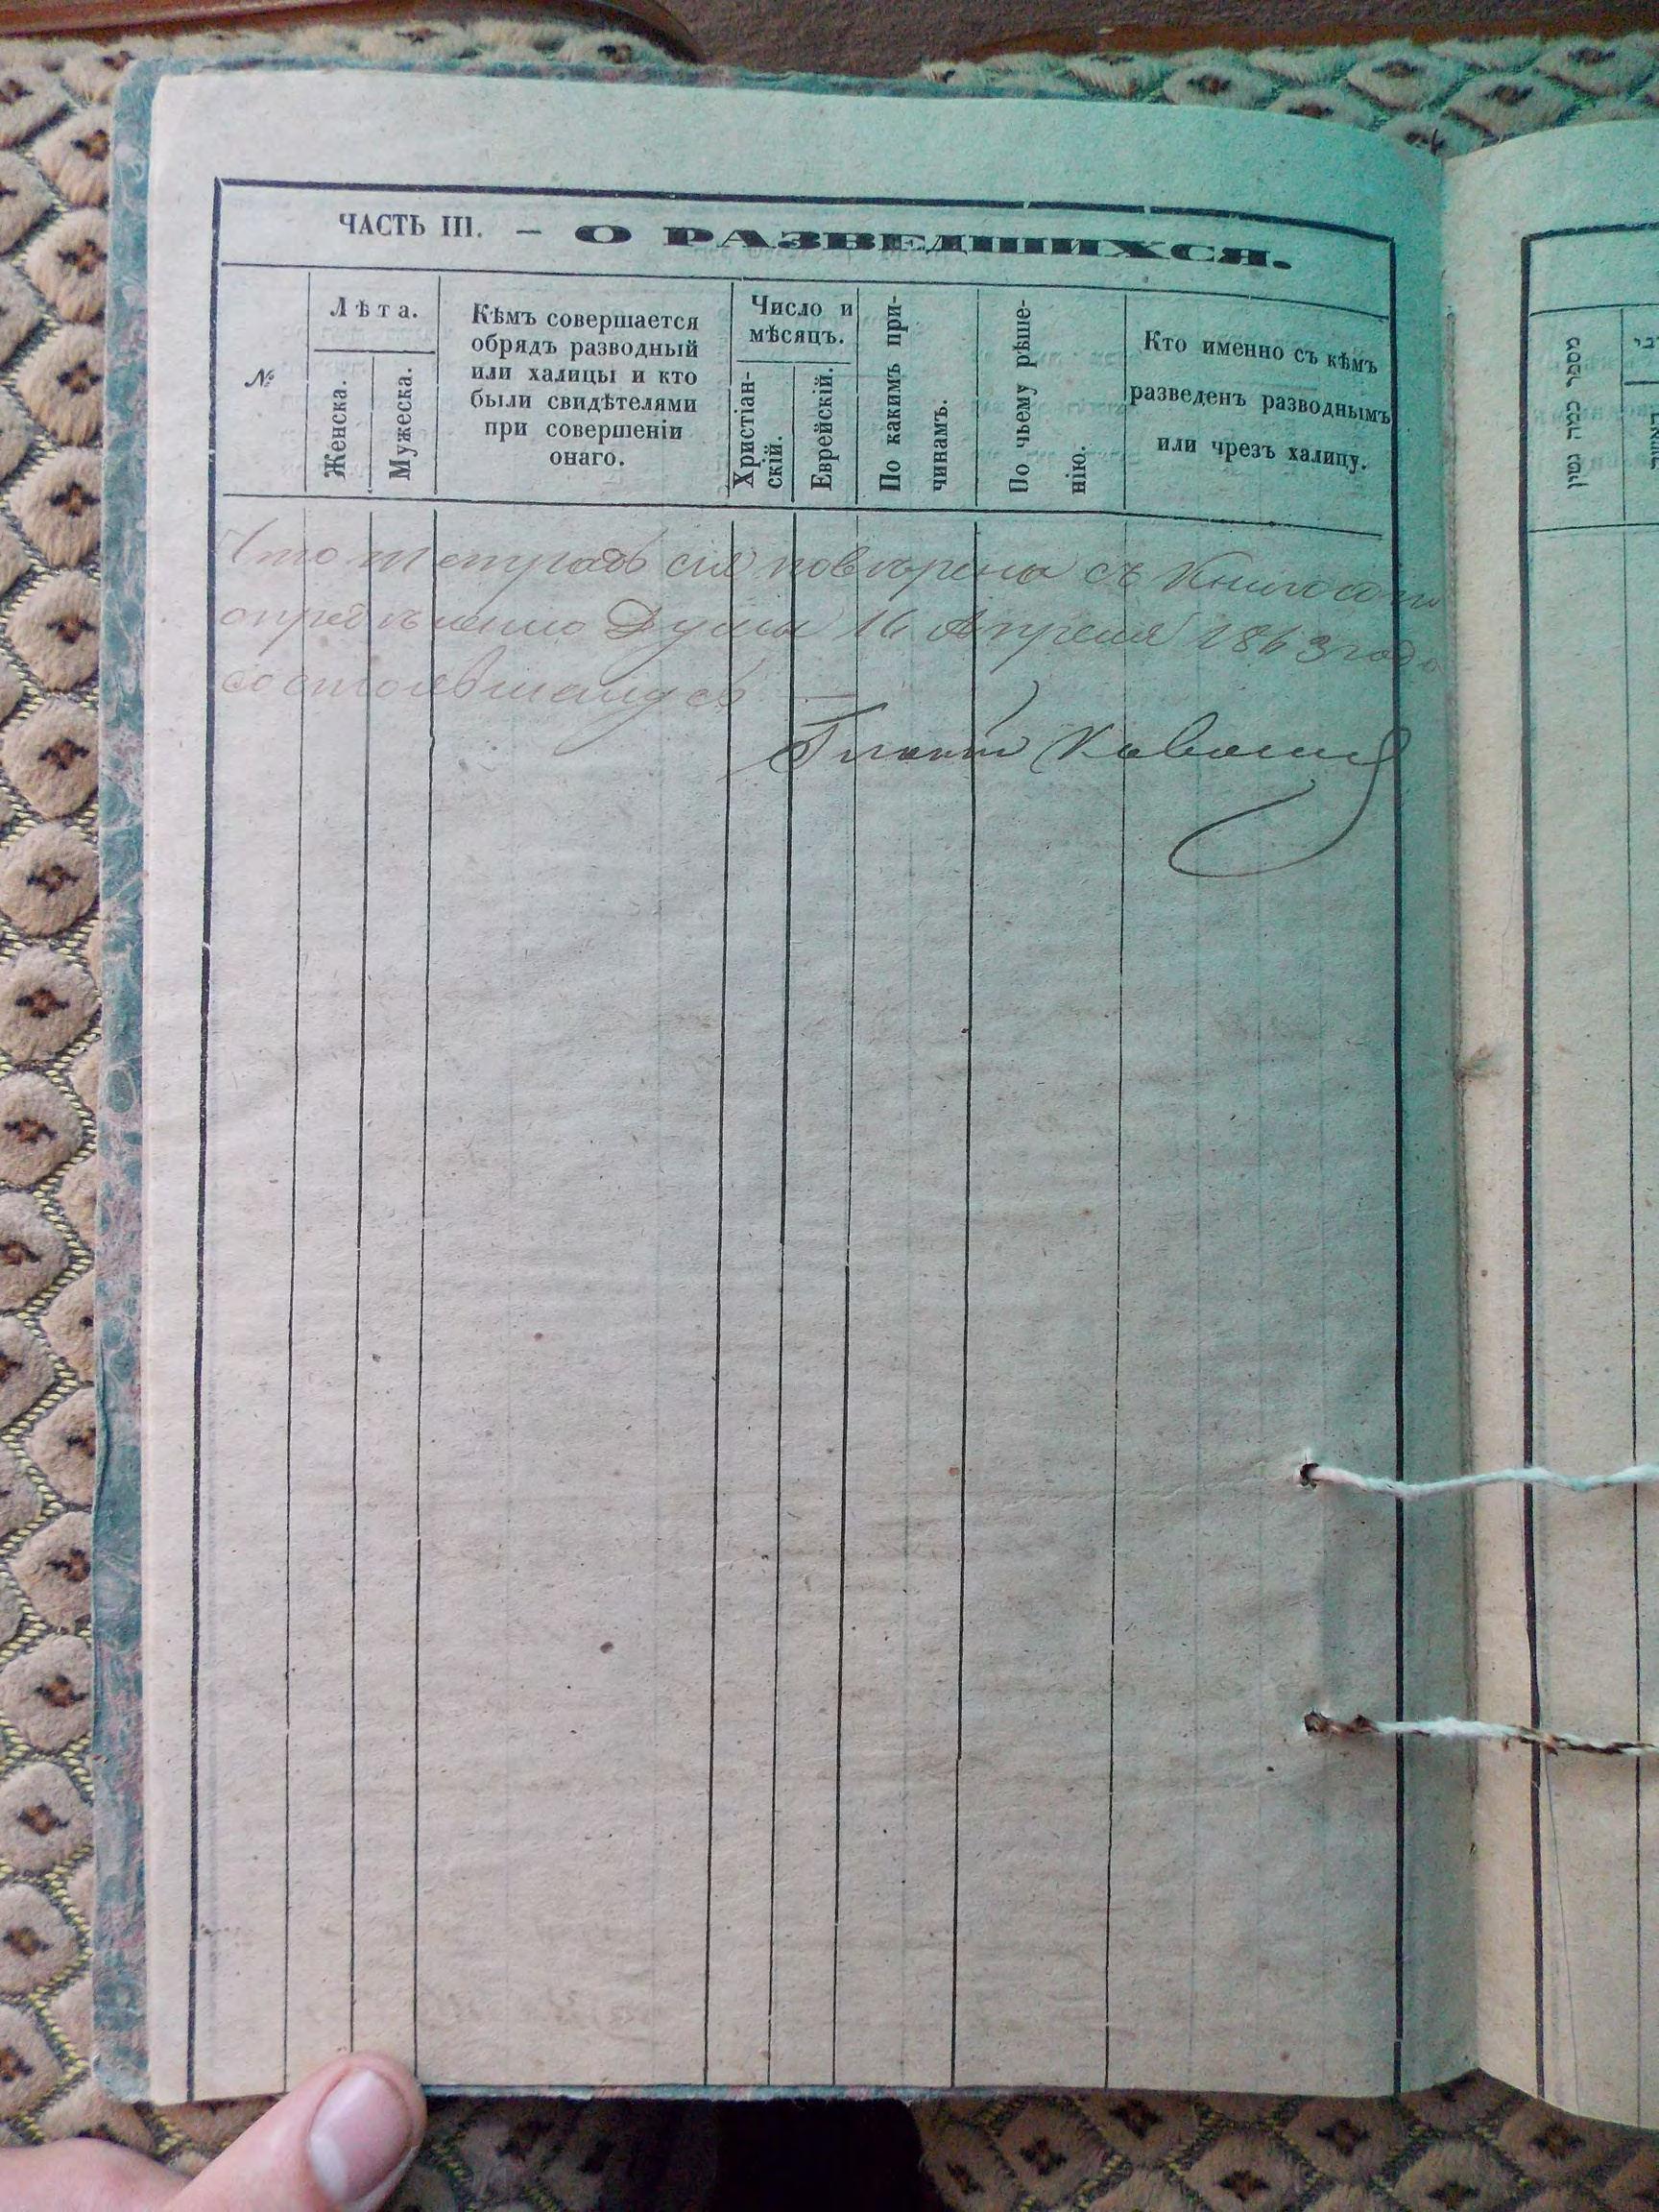 ЧАСТЬ III. – О РАЗВЕДШИХСЯ.
№
Лѣта.
Женска.
Мужеска.
Кѣмъ совершается
обрядъ разводный
или халицы и кто
были свидѣтелями
при совершеніи
онаго.
Число и
мѣсяцъ.
Христіан-
скій.
Еврейскій.
По какимъ при-
чинамъ.
По чьему рѣше-
нію.
Кто именно съ кѣмъ
разведенъ разводнымъ
или чрезъ халицу.
Что тетрадь сія повѣрена съ Книгою по
опредѣленію Думы 16 Апреля 1863 года
состоявшемуся
מספר כמה גטין